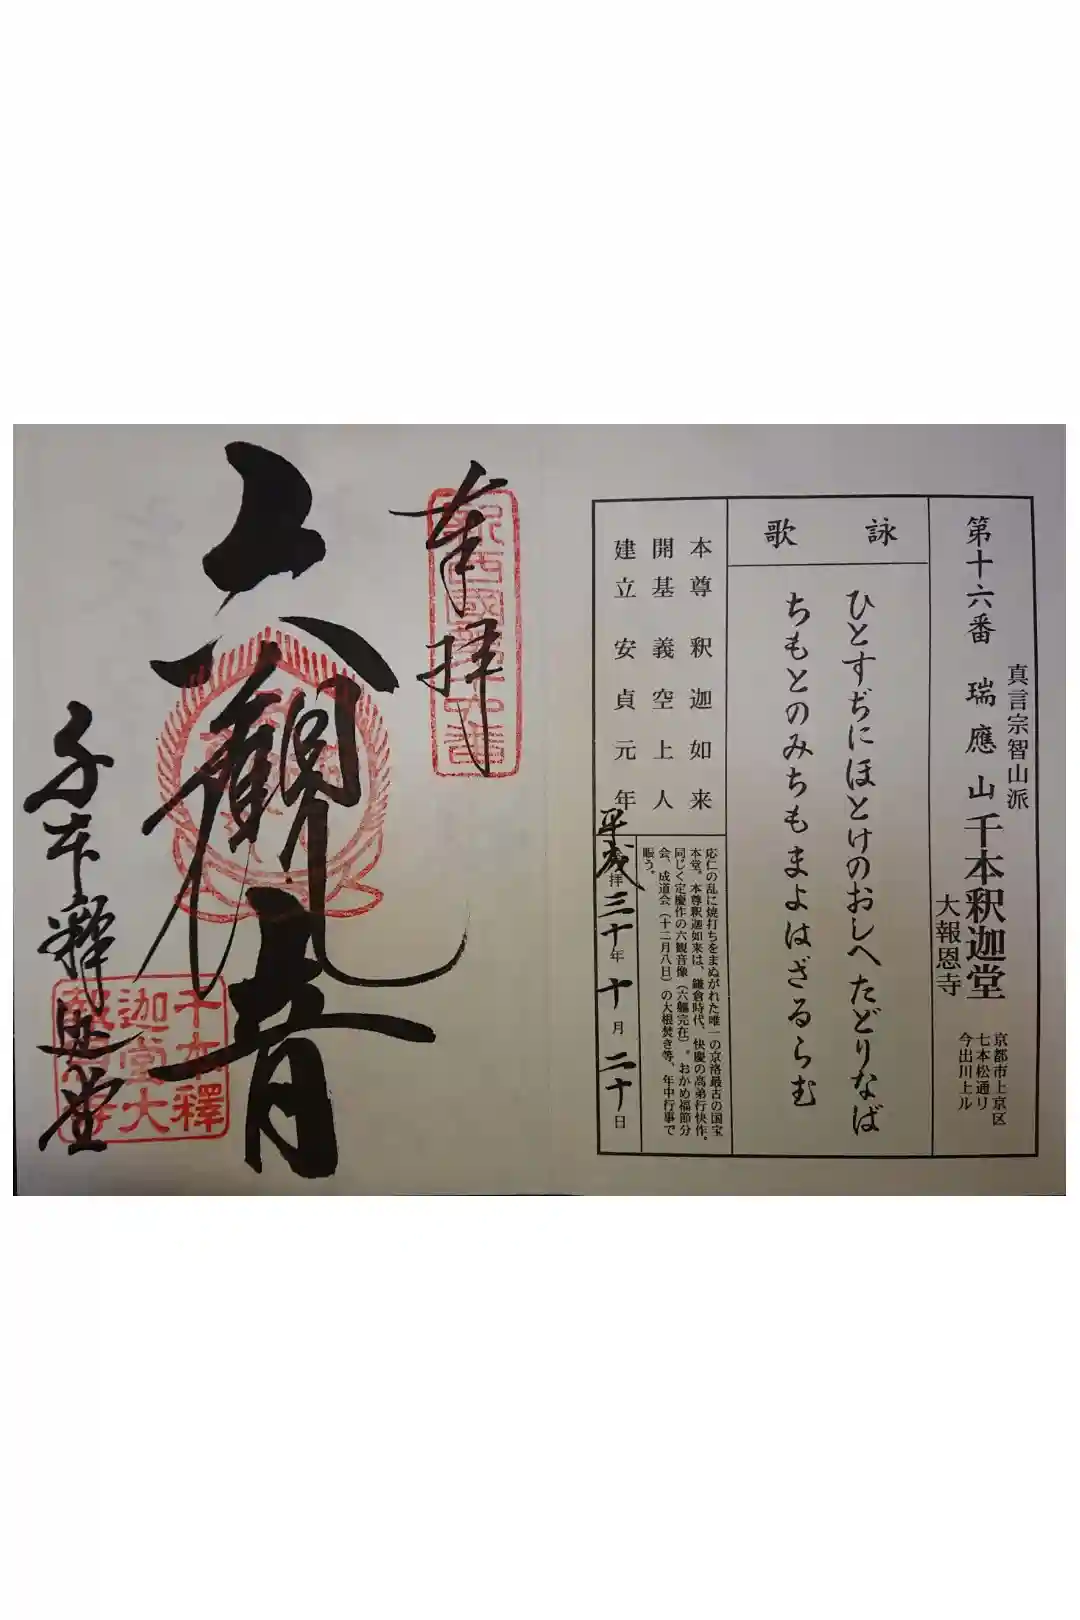 第十六番 瑞應山 千本釈迦堂
真言宗智山派
大報恩寺
京都市上京区
七本松通り
今出川上ル
詠歌
ひとすぢにほとけのおしへたどりなば
ちもとのみちもまよはざるらむ
本尊 釈迦如来
開基 義空上人
建立 安貞元年
応仁の乱に焼打ちをまぬがれた唯一の京洛最古の国宝
本堂。本尊釈迦如来は、鎌倉時代、快慶の高弟行快作。
同じく定慶作の六観音像（六軀完在）。おかめ福節分
会、成道会（十二月八日）の大根焚き等、年中行事で
賑う。
平成三十年十月二十日
奉拝
六観音
千本釋迦堂
千本釋
迦堂大
報恩寺